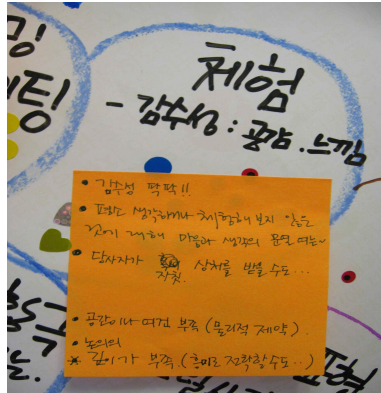 밍
이팅
체험
- 감수성 : 공감. 느낌
• 감수성 팍팍!!
• 평소 생각하거나 체험해 보지 않은
것에 대해 마음과 생각의 문을 여는~
• 당사자가 상처를 받을 수도...
자칫.
• 공간이나 여건 부족 (물리적 제약).
• 논의의
* 깊이가 부족. (흥미로 전락할 수도..)
표현
는.